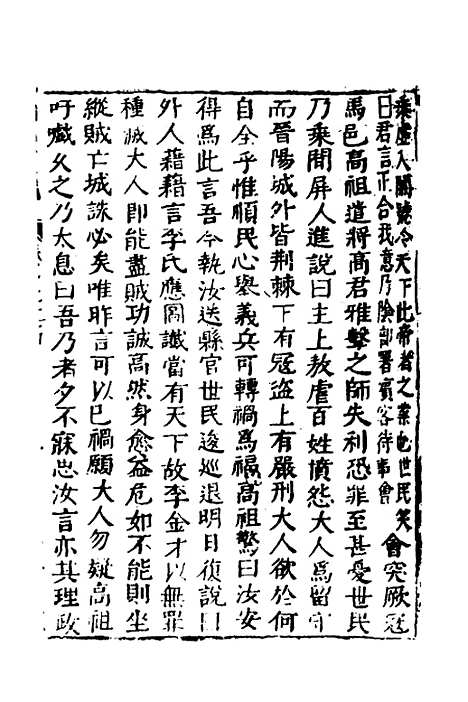 乘虛入關號令天下此帝者之業也世民笑
曰君言正合我意乃陰部署賓客待事會
會突厥寇
馬邑高祖遣將高君雅擊之師失利恐罪至甚憂世民
乃乘間屏人進說曰主上敖虐百姓憤怨大人為留守
而晉陽城外皆荆棘下有寇盗上有嚴刑大人欲於何
自全乎惟順民心舉義兵可轉禍為福高祖驚曰汝安
得為此言吾今執汝送縣官世民逡巡退明日復說曰
外人藉藉言李氏應圖讖當有天下故李金才以無罪
種滅大人即能盡賊功誠高然身愈益危如不能則坐
縱賊亡城誅必矣唯昨言可以已禍願大人勿疑高祖
吁嚱久之乃太息曰吾乃者夕不寐忠汝言亦其理政